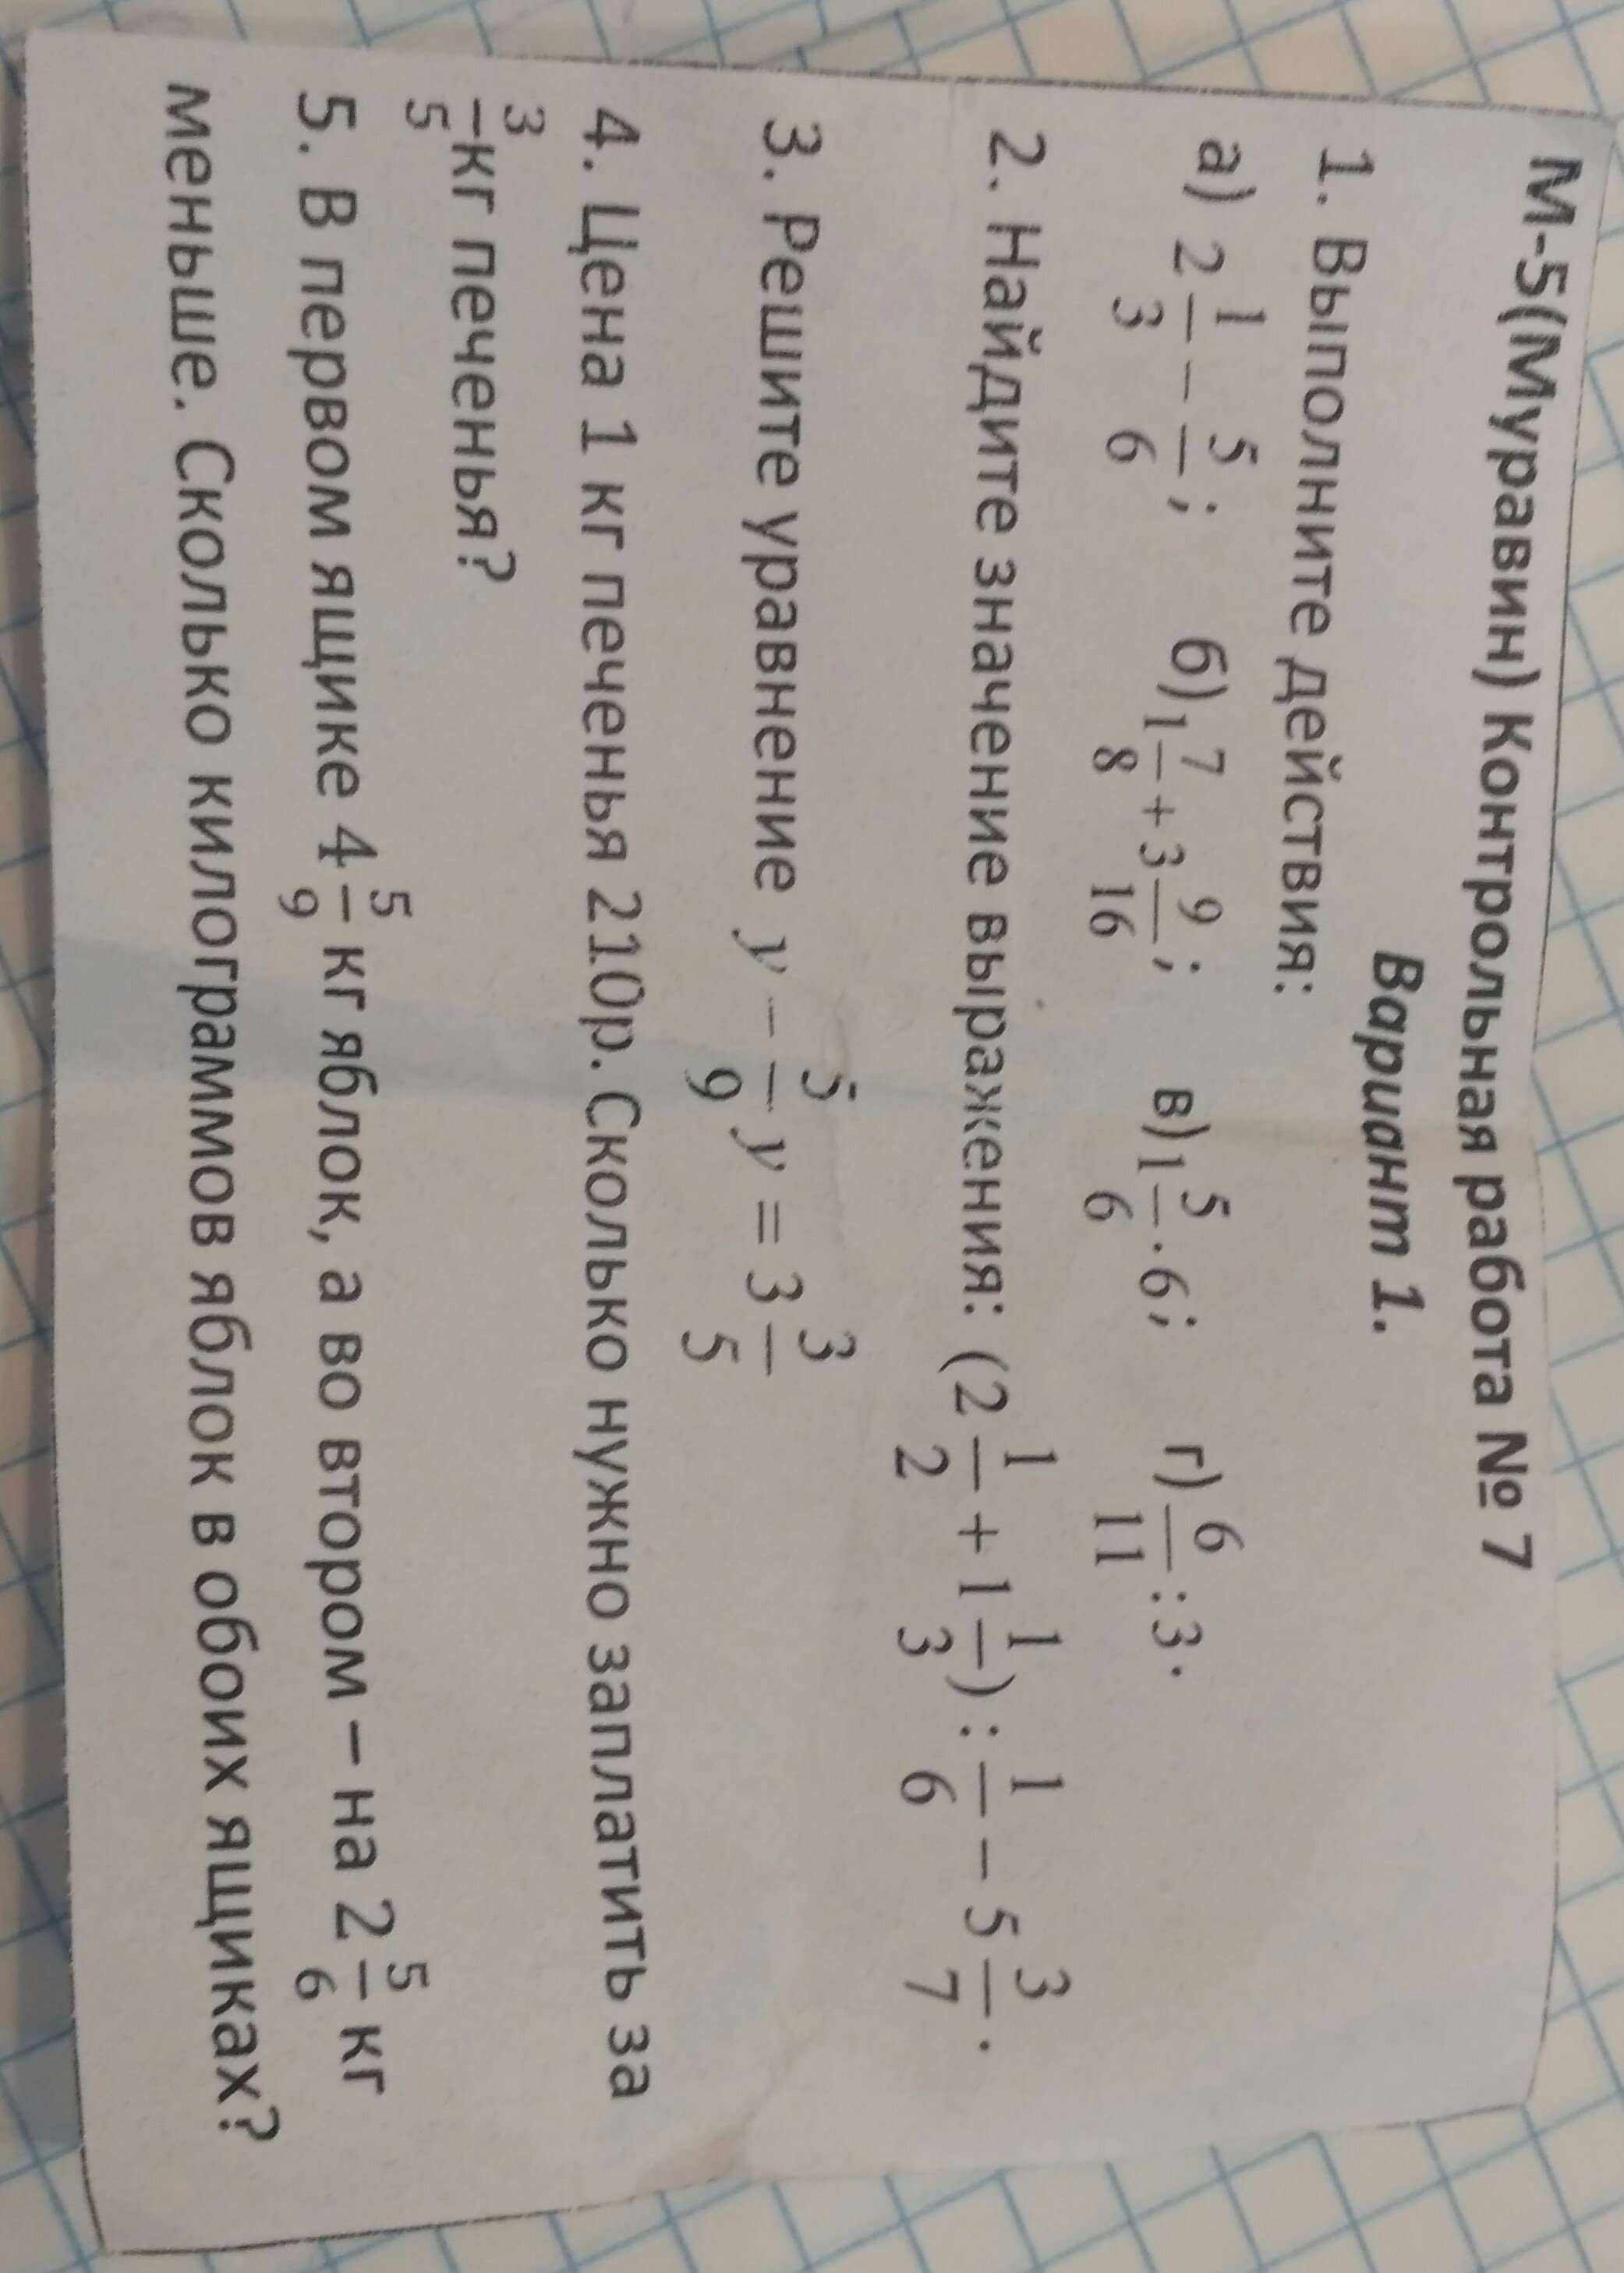 М-5(Муравин) Контрольная работа № 7
Вариант 1.
1. Выполните действия:
а) 2 1/3 − 5/6; б) 1 7/8 + 3 9/16; в) 1 5/6 · 6; г) 6/11 : 3.
2. Найдите значение выражения: (2 1/2 + 1 1/3) : 1/6 − 5 3/7.
3. Решите уравнение y − 5/9 y = 3 3/5
4. Цена 1 кг печенья 210р. Сколько нужно заплатить за
3/5 кг печенья?
5. В первом ящике 4 5/9 кг яблок, а во втором – на 2 5/6 кг
меньше. Сколько килограммов яблок в обоих ящиках?